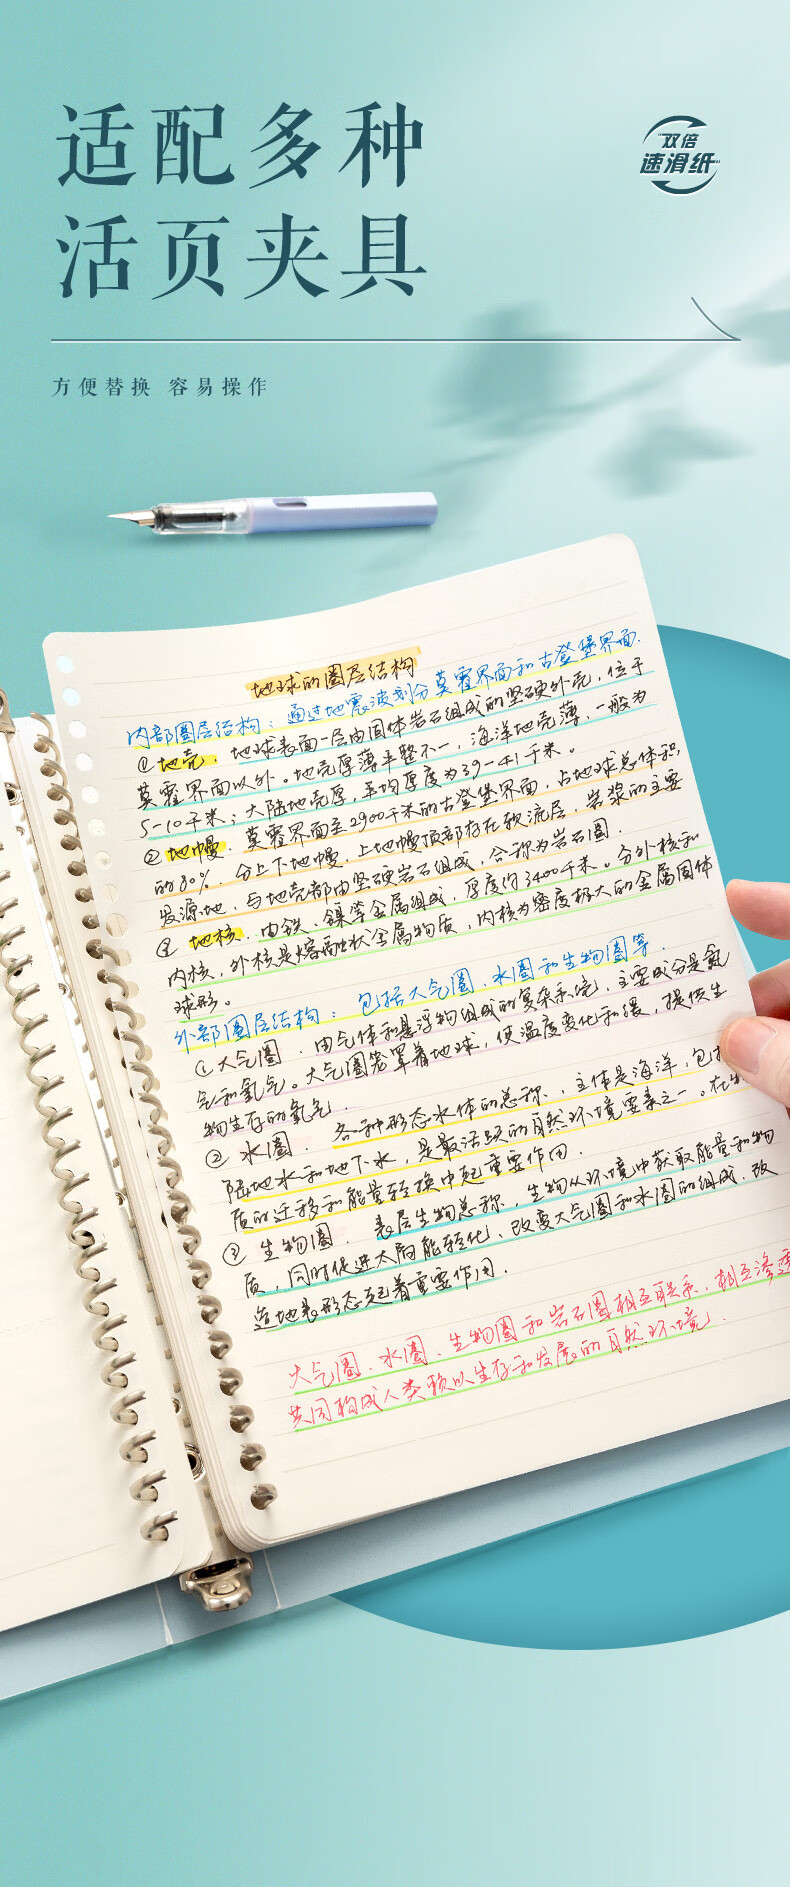 适配多种
活页夹具
双倍
速滑纸
方便替换 容易操作
地球的圈层结构
内部圈层结构：通过地震波划分莫霍界面和古登堡界面.
①地壳.地球表面一层由固体岩石组成的坚硬外壳，位于
莫霍界面以外。地壳厚薄平整不一，海洋地壳薄，一般为
5-10千米；大陆地壳厚，平均厚度为39-41千米。
②地幔.莫霍界面至2900千米的古登堡界面，占地球总体积
的80%.分上下地幔，上地幔顶部存在软流层，岩浆的主要
发源地，与地壳都由坚硬岩石组成，合称为岩石圈.
③地核.由铁、镍等金属组成，厚度约3400千米。分外核和
内核，外核是熔融状金属物质，内核为密度极大的金属固体
球形。
外部圈层结构：包括大气圈、水圈和生物圈等.
①大气圈.由气体和悬浮物组成的复杂系统，主要成分是氮
气和氧气。大气圈笼罩着地球，使温度变化和缓，提供生
物生存的氧气.
②水圈.各种形态水体的总称，主体是海洋，包括
陆地水和地下水，是最活跃的自然环境要素之一。在
质的迁移和能量转换中起重要作用.
③生物圈.表层生物总称，生物从环境中获取能量和物
质，同时促进太阳能转化、改变大气圈和水圈的组成、改
造地表形态起着重要作用.
大气圈、水圈、生物圈和岩石圈相互联系，相互渗透
共同构成人类赖以生存和发展的自然环境.